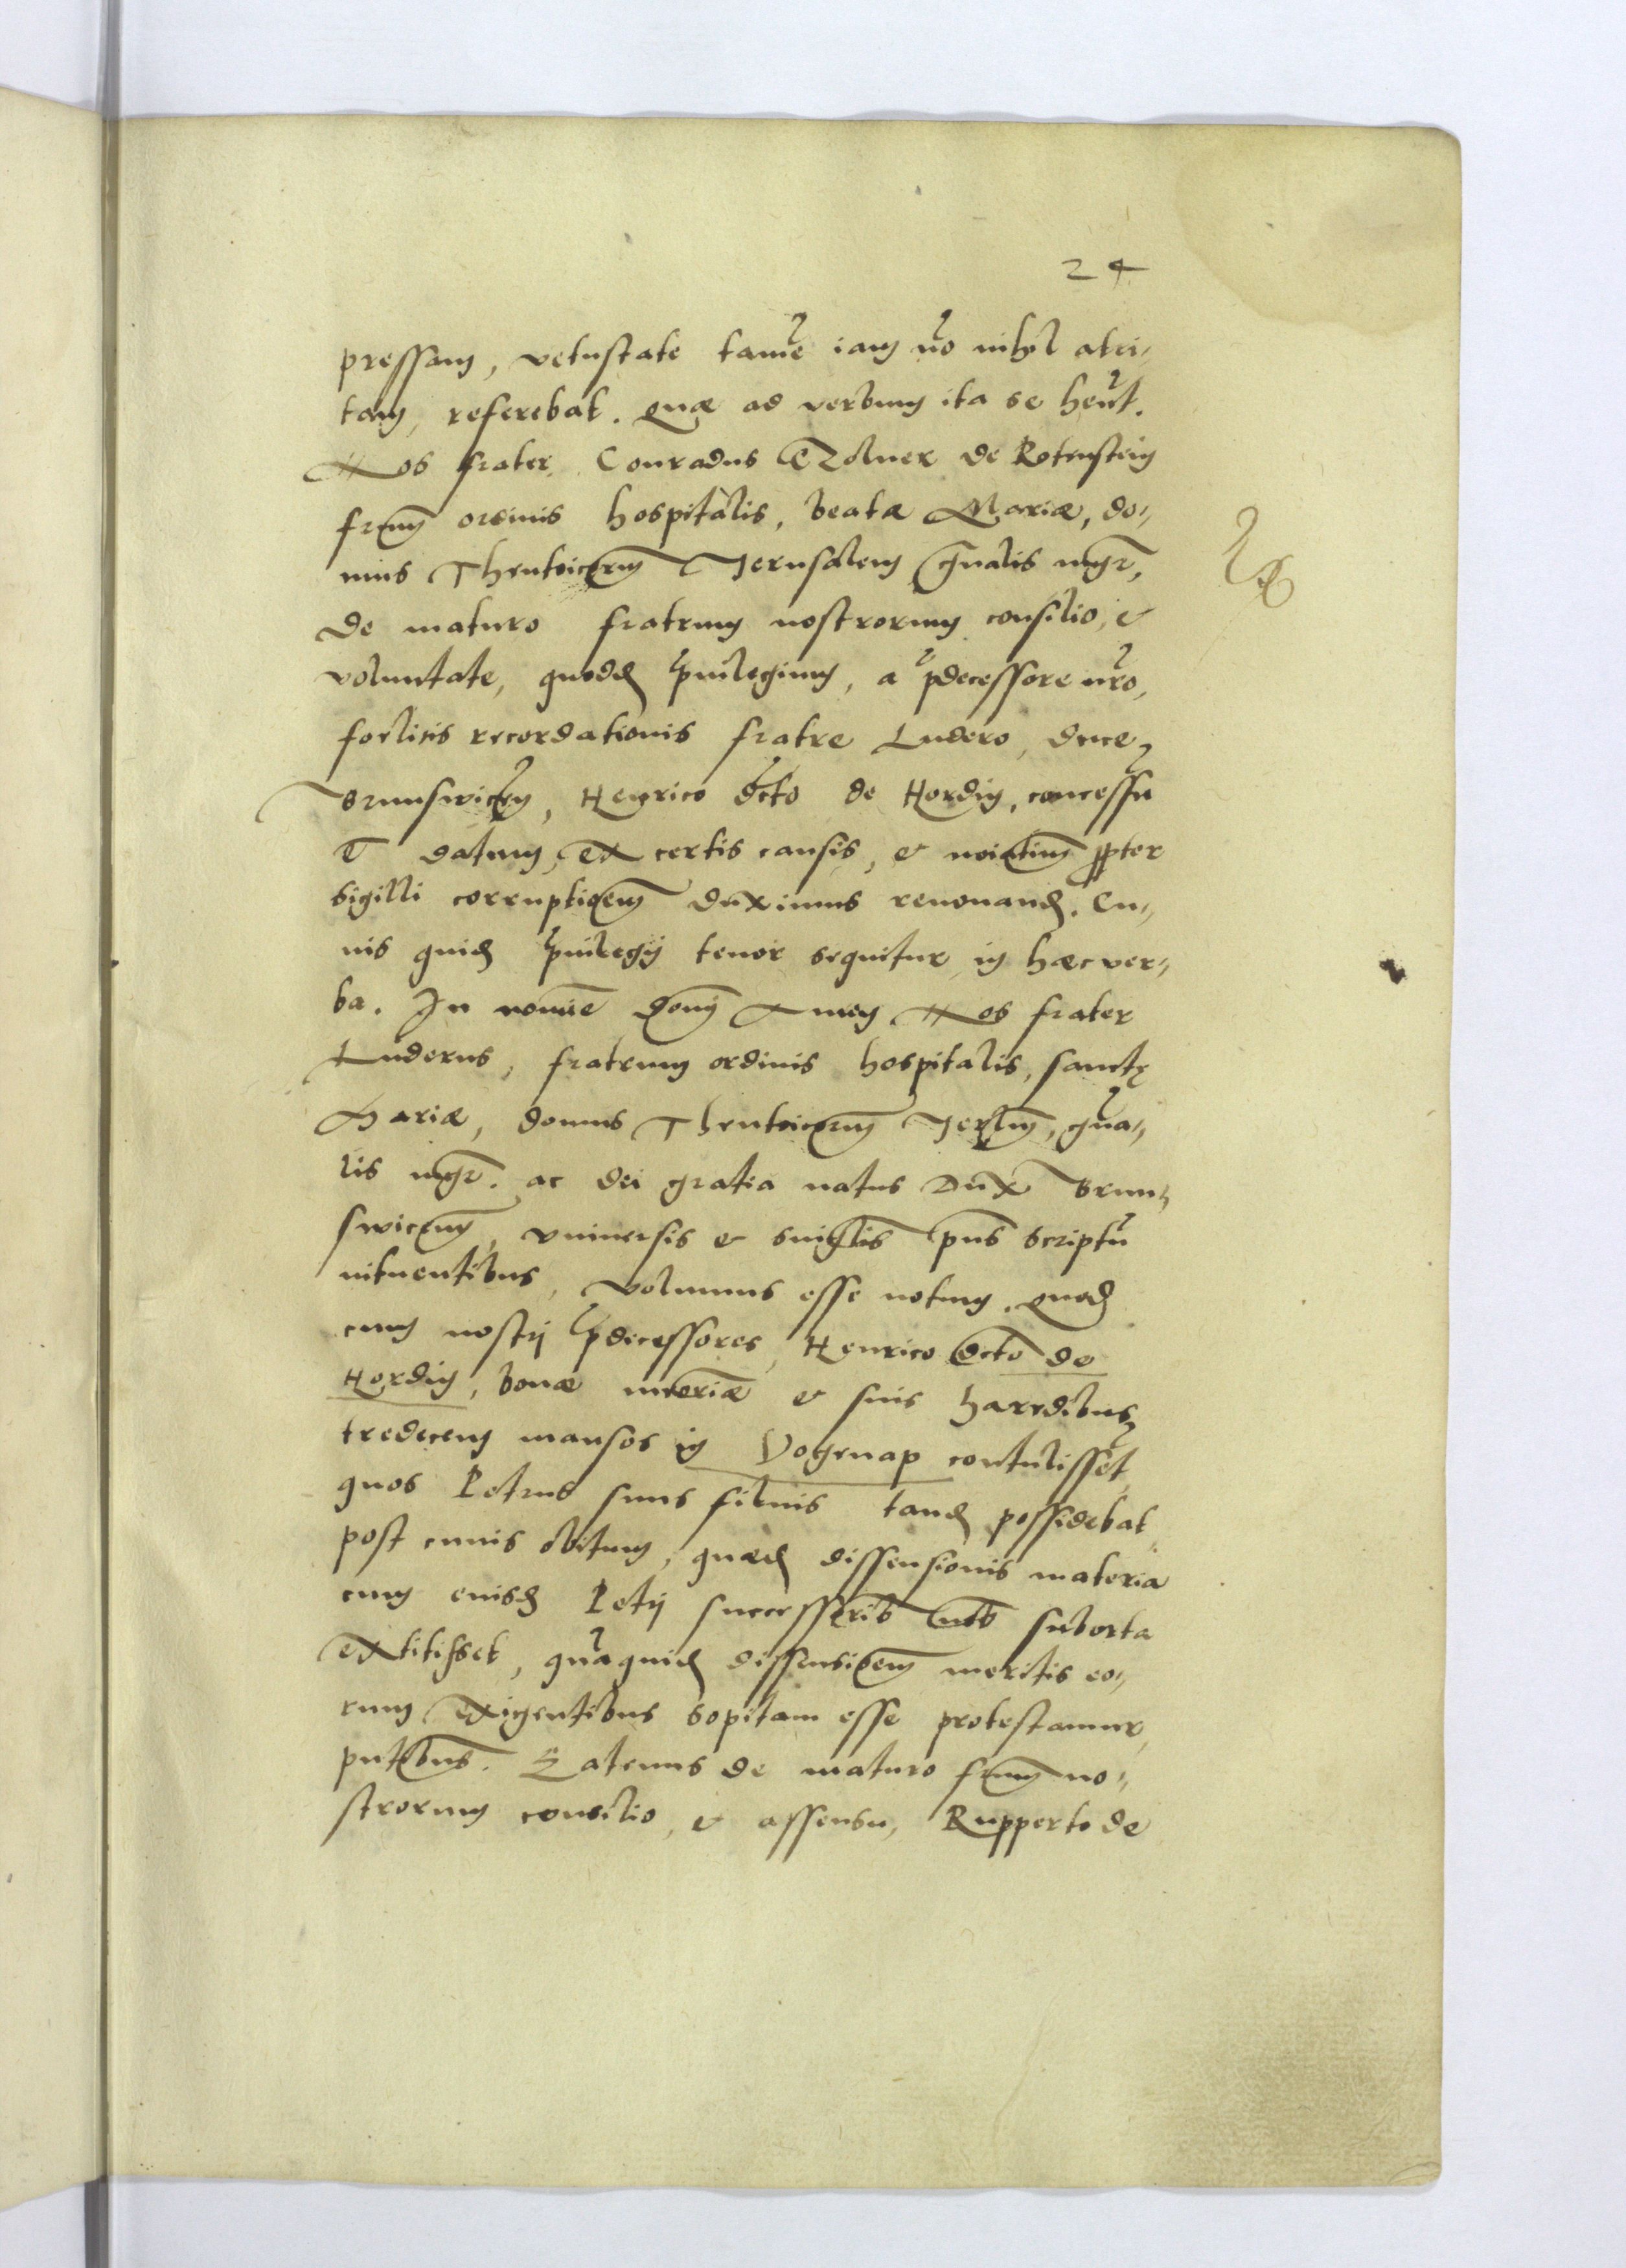 24
pressam, vetustate tame iam uro nihil atri-
tam, referebat. Quæ ad verbum ita se hent.
Nos frater Conradus Czolner de Rotenstein
frum ordinis hospitalis, beatæ Mariæ, do-
mus Theutoicorum Jerusalem gnalis mgr,
de maturo fratrum nostrorum consilio, &
voluntate, quodd puilegium, a pdecessore nro,
foelicis recordationis fratre Ludero, duce
Brunswicen, Henrico dcto de Hordin, concessu
e datum, ex certis causis, & noiatim ppter
sigilli corruptioem duximus renouand. Cu-
uis quid puilegij tenor sequitur in hæc ver-
ba. In nomie domi Amen Nos frater
Luderus, fratrum ordinis hospitalis, sanctę
Mariæ, domus Theutoicorum Jerlm, gna-
lis mgr. ac dei gratia natus Dux Brun-
swicem, vniuersis & sniglis pns scriptu
intuentibus, volumus esse notum. Quod
cum nostri pdecessores, Henrico dcto de
Hordin, bonæ meoriæ & suis hæredibus
tredecem mansos in Vogenap contulisset,
quos Petrus suus filuis tand possidebat,
post cuuis obitum, quæd dissensionis materia
cum euisd Petri successorib nob suborta
extitisset, qua quid dissensioem meritis eo-
rum exigentibus sopitam esse protestamur
pntibus. Eatenus de maturo frum no-
strorum consilio, & assensu, Rupperto de